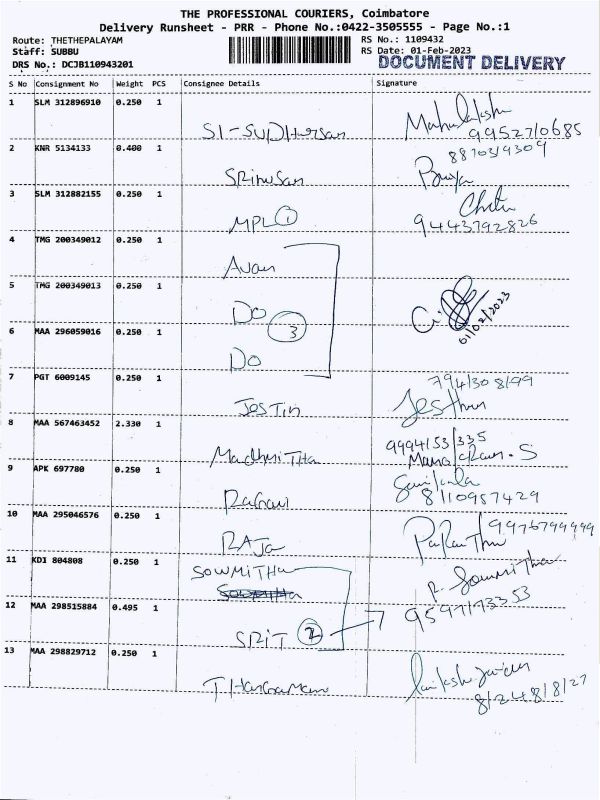 THE PROFESSIONAL COURIERS, Coimbatore
Delivery Runsheet - PRR - Phone No.:0422-3505555 - Page No.:1
Route: THETHEPALAYAM
RS No.: 1109432
Staff: SUBBU
RS Date: 01-Feb-2023
DRS No.: DCJB110943201
DOCUMENT DELIVERY
S No Consignment No Weight PCS Consignee Details Signature
1 SLM 312896910 0.250 1 SI-SUDHarsan
9952710685
2 KNR 5134133 0.400 1 SRinusan
3 SLM 312882155 0.250 1 MPL 1
9443792826
4 TMG 200349012 0.250 1 Avan
5 TMG 200349013 0.250 1 DO
3
01/02/2023
6 MAA 296059016 0.250 1 DO
7 PGT 6009145 0.250 1 JesTin
7941308199
8 MAA 567463452 2.330 1 MadhuiTHa
9994153335
9 APK 697780 0.250 1
8110957429
10 MAA 295046576 0.250 1 RAJa
9976799999
11 KDI 804808 0.250 1 SOWMITHa
R. Sowmitha
9597173353
12 MAA 298515884 0.495 1 SRIT 2
13 MAA 298829712 0.250 1
8124818127